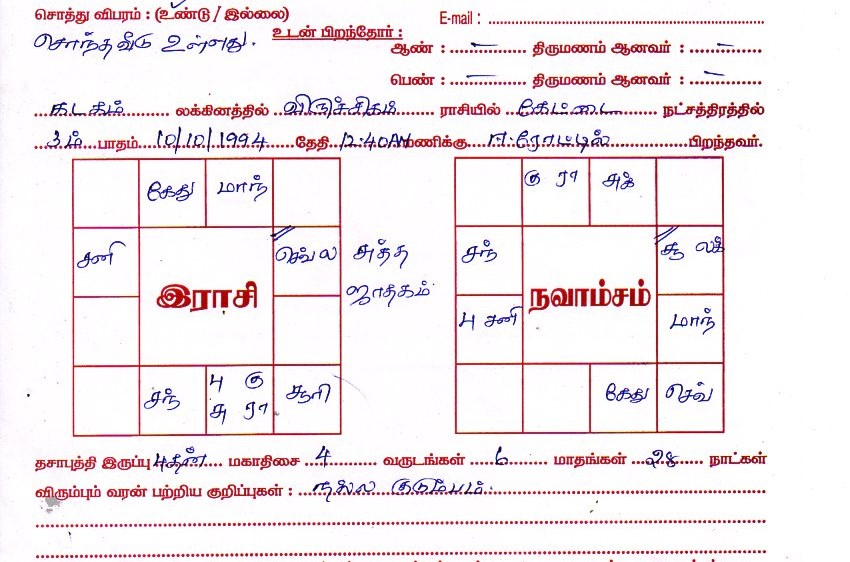 சொத்து விபரம் : (உண்டு / இல்லை)
E-mail :
சொந்த வீடு உள்ளது.
உடன் பிறந்தோர் :
ஆண் : — திருமணம் ஆனவர் : —
பெண் : — திருமணம் ஆனவர் : —
கடகம் லக்கினத்தில் விருச்சிகம் ராசியில் கேட்டை நட்சத்திரத்தில்
3ம் பாதம் 10/10/1994 தேதி 12:40AM மணிக்கு ஈரோட்டில் பிறந்தவர்.
கேது மாந்
சனி செவ் ல
இராசி
சந் பு கு சு ரா சூரி
ஜாதகம்
கு ரா சுக்
சந் சூ லக்
நவாம்சம்
பு சனி மாந்
கேது செவ்
தசாபுத்தி இருப்பு புதன் மகாதிசை 4 வருடங்கள் 6 மாதங்கள் 28 நாட்கள்
விரும்பும் வரன் பற்றிய குறிப்புகள் : நல்ல குடும்பம்.